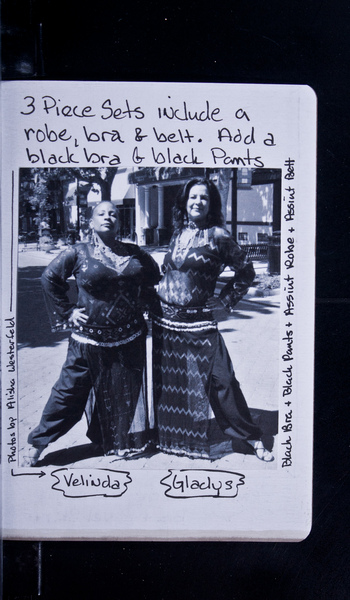 3 Piece Sets include a
robe, bra & belt. Add a
black bra & black Pants
Photos by Alisha Westerfeld
Black Bra + Black Pants + Assiut Robe + Assiut Belt
{Velinda}
{Gladys}